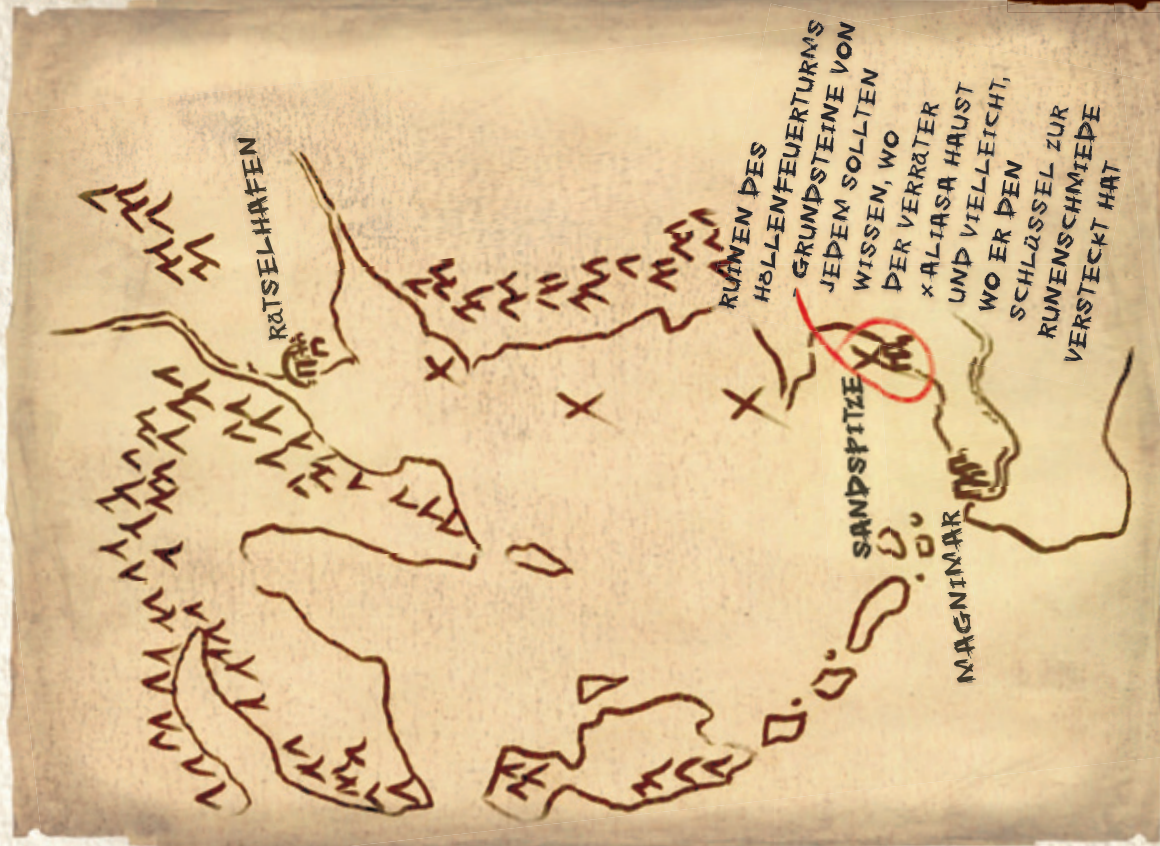 RÄTSELHAFEN
RUINEN DES
HÖLLENFEUERTURMS
- GRUNDSTEINE VON
JEDEM SOLLTEN
WISSEN, WO
DER VERRÄTER
XALIASA HAUST
UND VIELLEICHT,
WO ER DEN
SCHLÜSSEL ZUR
RUNENSCHMIEDE
VERSTECKT HAT
SANDSPITZE
MAGNIMAR